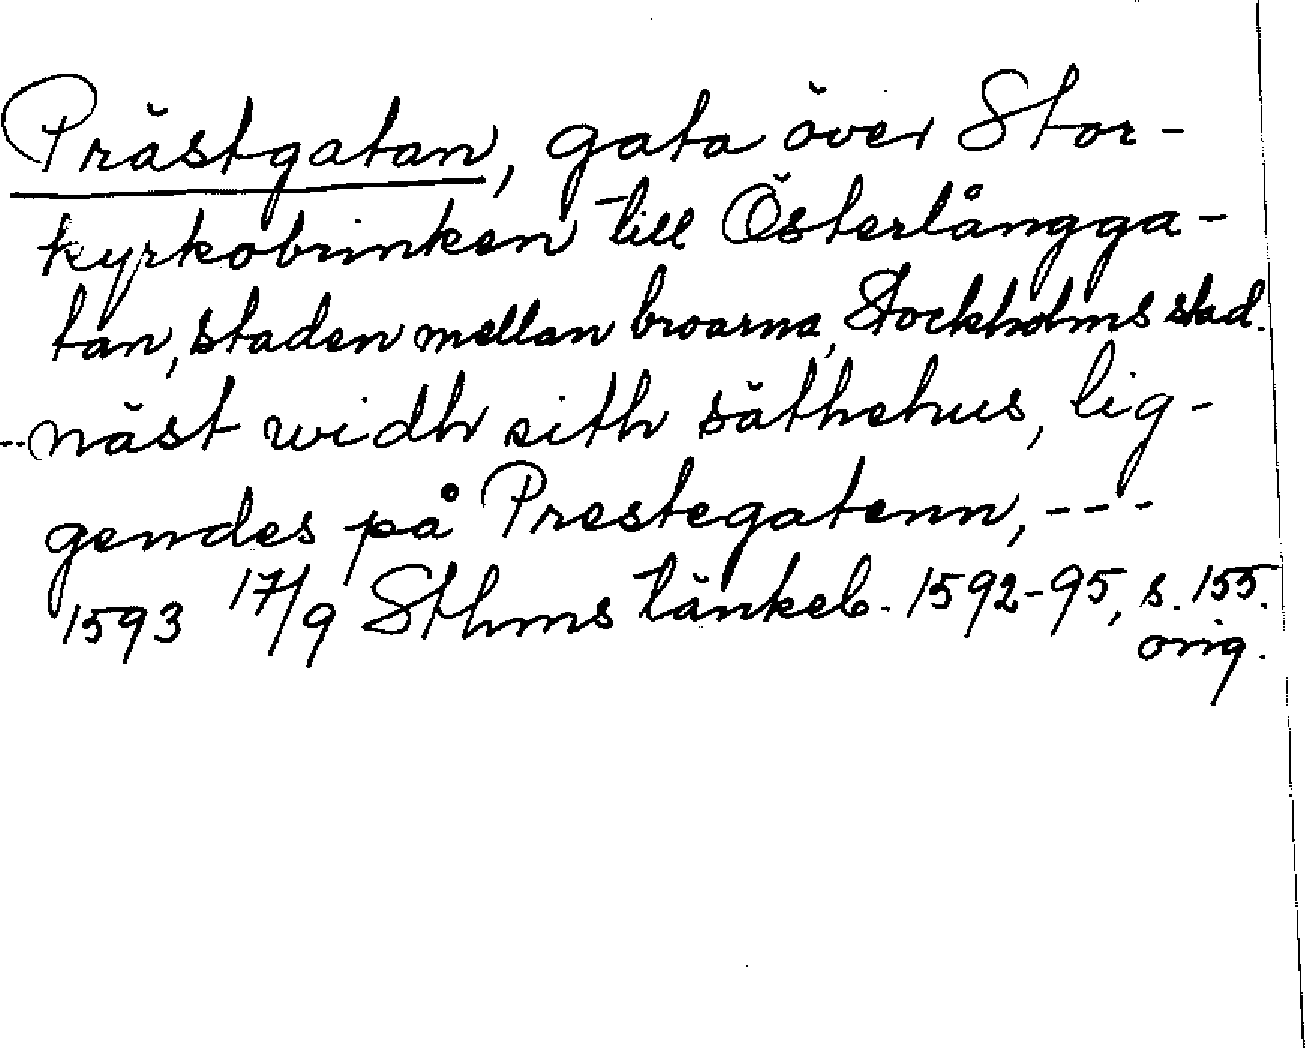 Prästgatan, gata över Stor-
kyrkobrinken till Österlångga-
tan, staden mellan broarna, Stockholms stad.
--näst widh sith säthehus, lig-
gendes på Prestegatenn, ---
1593 17/9 Sthms tänkeb. 1592-95, s. 155.
orig.